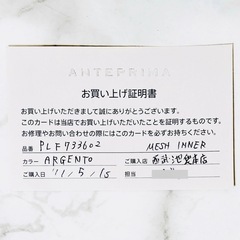 ANTEPRIMA
お買い上げ証明書
お買い上げいただきまして誠にありがとうございます。
このカードは当店でお買い上げいただいたことを証明するものです。
お修理やお問い合わせの際にはこのカードを必ずお持ちください。
品番 PLF733602 MESH INNER
カラー ARGENTO ご購入店 西武池袋本店
ご購入日 '11/5/15 担当